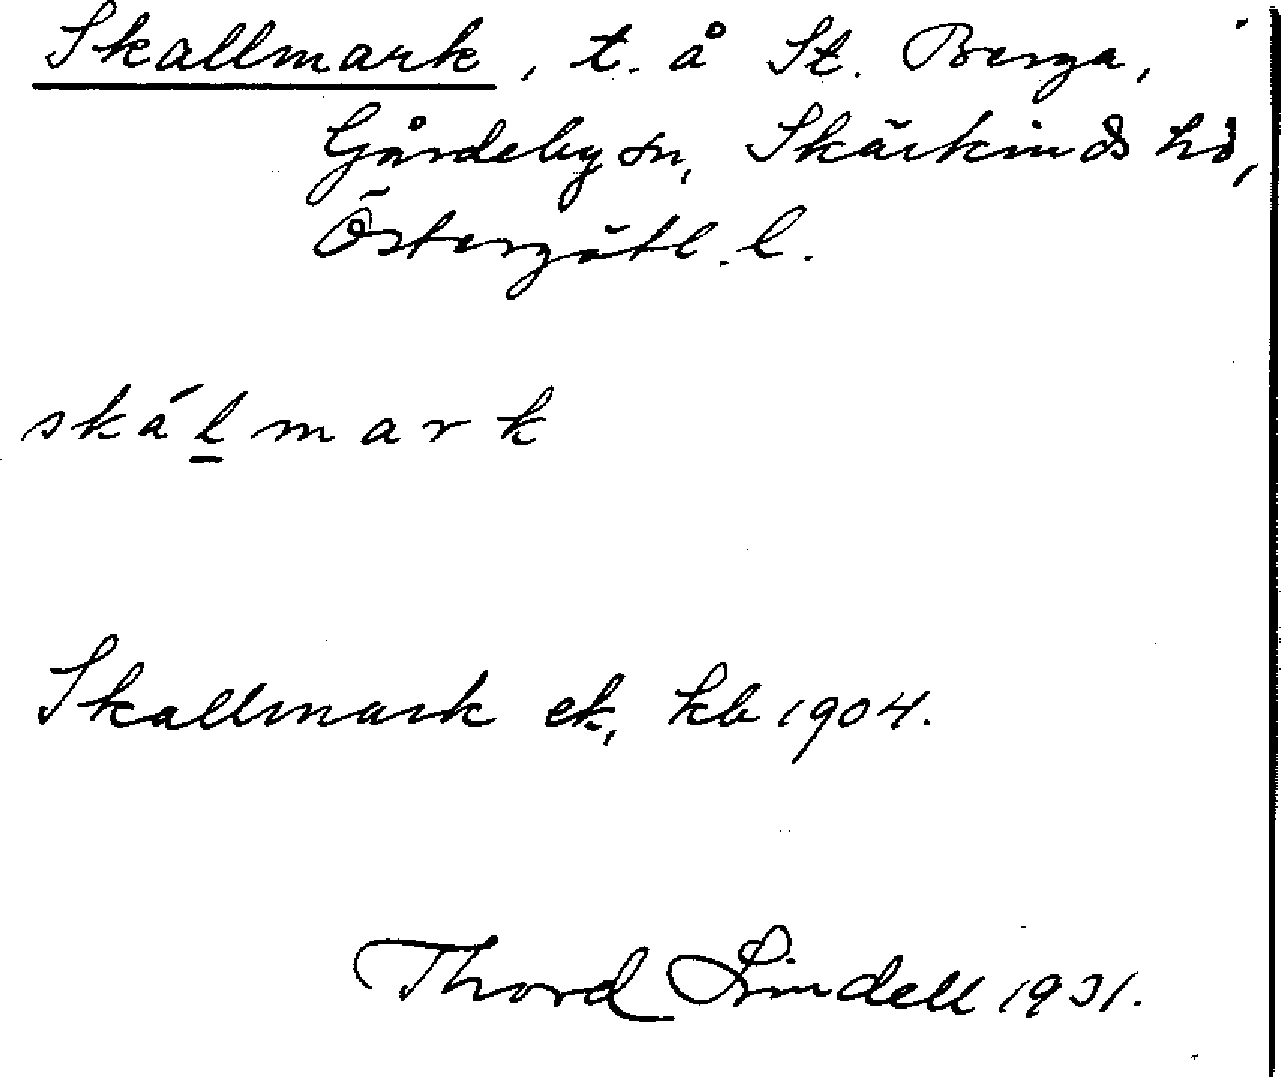 Skallmark, t. å St. Berga,
Gårdeby sn, Skärkinds hd,
Östergötl. l.
skálmark
Skallmark ek, kb 1904.
Thord Lindell 1931.